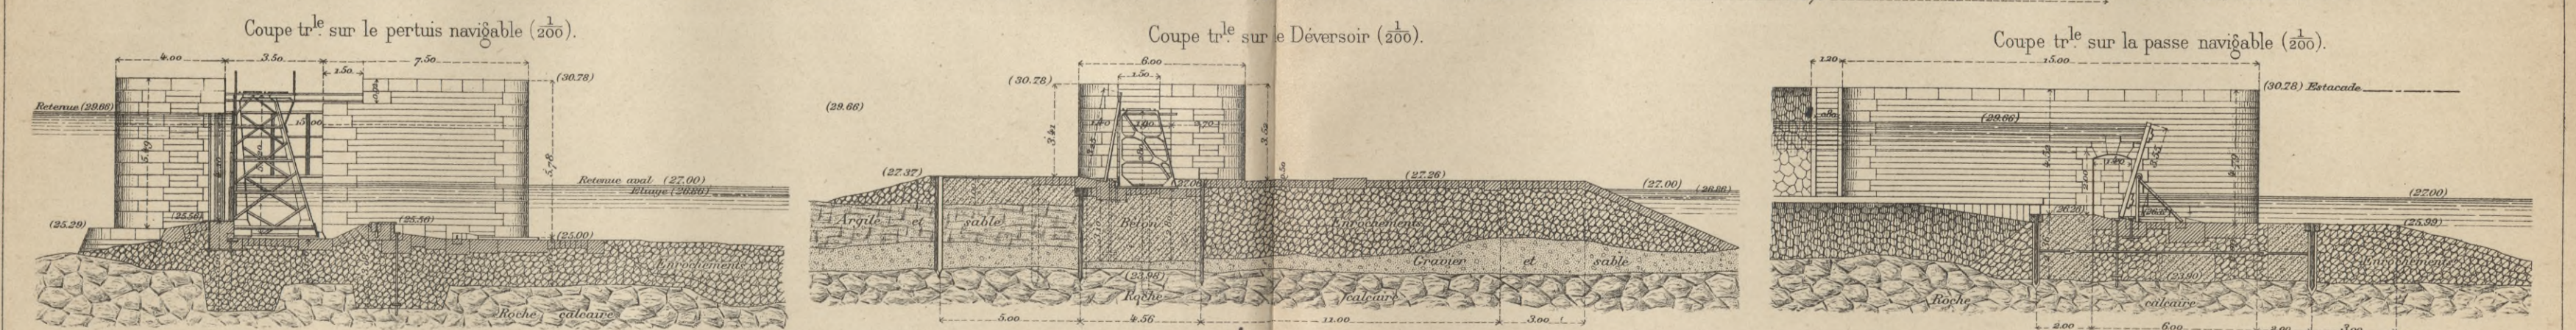 Coupe tr.le sur le pertuis navigable (1/200).
4.00 3.50 7.50
1.50
(30.78)
Retenue (29.66)
15.00
5.78
Retenue aval (27.00)
Etiage (26.66)
(25.29)
(25.56)
(25.56)
(25.00)
Enrochements
Roche calcaire
Coupe tr.le sur le Déversoir (1/200).
6.00
1.50
(30.78)
(29.66)
3.41
(27.37)
(27.26)
(27.00)
(26.66)
Argile et sable
Béton
Enrochements
Gravier et sable
(23.98)
Roche calcaire
5.00 4.56 11.00 3.00
Coupe tr.le sur la passe navigable (1/200).
1.20 15.00
(30.78) Estacade
(29.66)
3.55
(27.00)
(25.99)
(23.90)
Enrochements
Roche calcaire
2.00 6.00 2.00 3.00